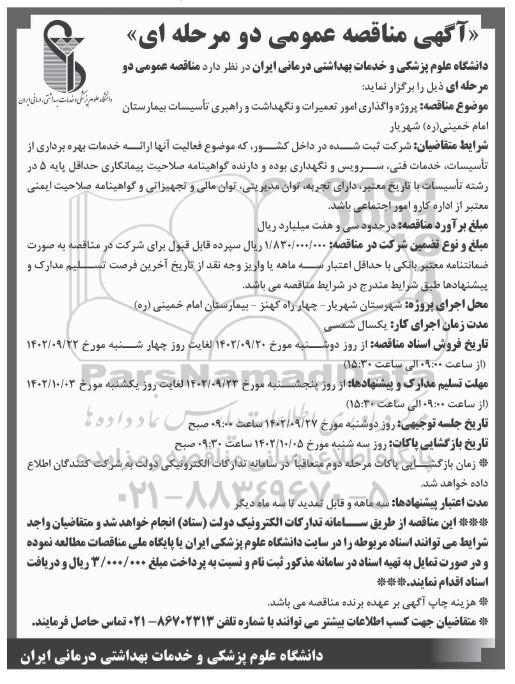 «آگهی مناقصه عمومی دو مرحله ای»
دانشگاه علوم پزشکی و خدمات بهداشتی، درمانی ایران
دانشگاه علوم پزشکی و خدمات بهداشتی درمانی ایران در نظر دارد مناقصه عمومی دو
مرحله ای ذیل را برگزار نماید:
موضوع مناقصه: پروژه واگذاری امور تعمیرات و نگهداشت و راهبری تأسیسات بیمارستان
امام خمینی(ره) شهریار
شرایط متقاضیان: شرکت ثبت شده در داخل کشور، که موضوع فعالیت آنها ارائه خدمات بهره برداری از
تأسیسات، خدمات فنی، سرویس و نگهداری بوده و دارنده گواهینامه صلاحیت پیمانکاری حداقل پایه ۵ در
رشته تأسیسات با تاریخ معتبر، دارای تجربه، توان مدیریتی، توان مالی و تجهیزاتی و گواهینامه صلاحیت ایمنی
معتبر از اداره کارو امور اجتماعی باشد.
مبلغ برآورد مناقصه: درحدود سی و هفت میلیارد ریال
مبلغ و نوع تضمین شرکت در مناقصه: ۱/۸۳۰/۰۰۰/۰۰۰ ریال سپرده قابل قبول برای شرکت در مناقصه به صورت
ضمانتنامه معتبر بانکی با حداقل اعتبار سه ماهه یا واریز وجه نقد از تاریخ آخرین فرصت تسلیم مدارک و
پیشنهادها طبق شرایط مندرج در شرایط مناقصه می باشد.
محل اجرای پروژه: شهرستان شهریار- چهار راه کهنز - بیمارستان امام خمینی (ره)
مدت زمان اجرای کار: یکسال شمسی
تاریخ فروش اسناد مناقصه: از روز دوشنبه مورخ ۱۴۰۲/۰۹/۲۰ لغایت روز چهار شنبه مورخ ۱۴۰۲/۰۹/۲۲
(از ساعت ۰۹:۰۰ الی ساعت ۱۵:۳۰)
مهلت تسلیم مدارک و پیشنهادها: از روز پنجشنبه مورخ ۱۴۰۲/۰۹/۲۳ لغایت روز یکشنبه مورخ ۱۴۰۲/۱۰/۰۳
(از ساعت ۰۹:۰۰ الی ساعت ۱۵:۳۰)
تاریخ جلسه توجیهی: روز دوشنبه مورخ ۱۴۰۲/۰۹/۲۷ ساعت ۰۹:۰۰ صبح
تاریخ بازگشایی پاکات: روز سه شنبه مورخ ۱۴۰۲/۱۰/۰۵ ساعت ۰۹:۳۰ صبح
* زمان بازگشایی پاکات مرحله دوم متعاقباً در سامانه تدارکات الکترونیکی دولت به شرکت کنندگان اطلاع
داده خواهد شد.
مدت اعتبار پیشنهادها: سه ماهه و قابل تمدید تا سه ماه دیگر
*** این مناقصه از طریق سامانه تدارکات الکترونیک دولت (ستاد) انجام خواهد شد و متقاضیان واجد
شرایط می توانند اسناد مربوطه را در سایت دانشگاه علوم پزشکی ایران یا پایگاه ملی مناقصات مطالعه نموده
و در صورت تمایل به تهیه اسناد در سامانه مذکور ثبت نام و نسبت به پرداخت مبلغ ۳/۰۰۰/۰۰۰ ریال و دریافت
اسناد اقدام نمایند.***
* هزینه چاپ آگهی بر عهده برنده مناقصه می باشد.
* متقاضیان جهت کسب اطلاعات بیشتر می توانند با شماره تلفن ۸۶۷۰۲۳۱۳-۰۲۱ تماس حاصل فرمایند.
دانشگاه علوم پزشکی و خدمات بهداشتی درمانی ایران
ParsNamadData
۰۲۱-۸۸۳۴۹۶۷۰-۵